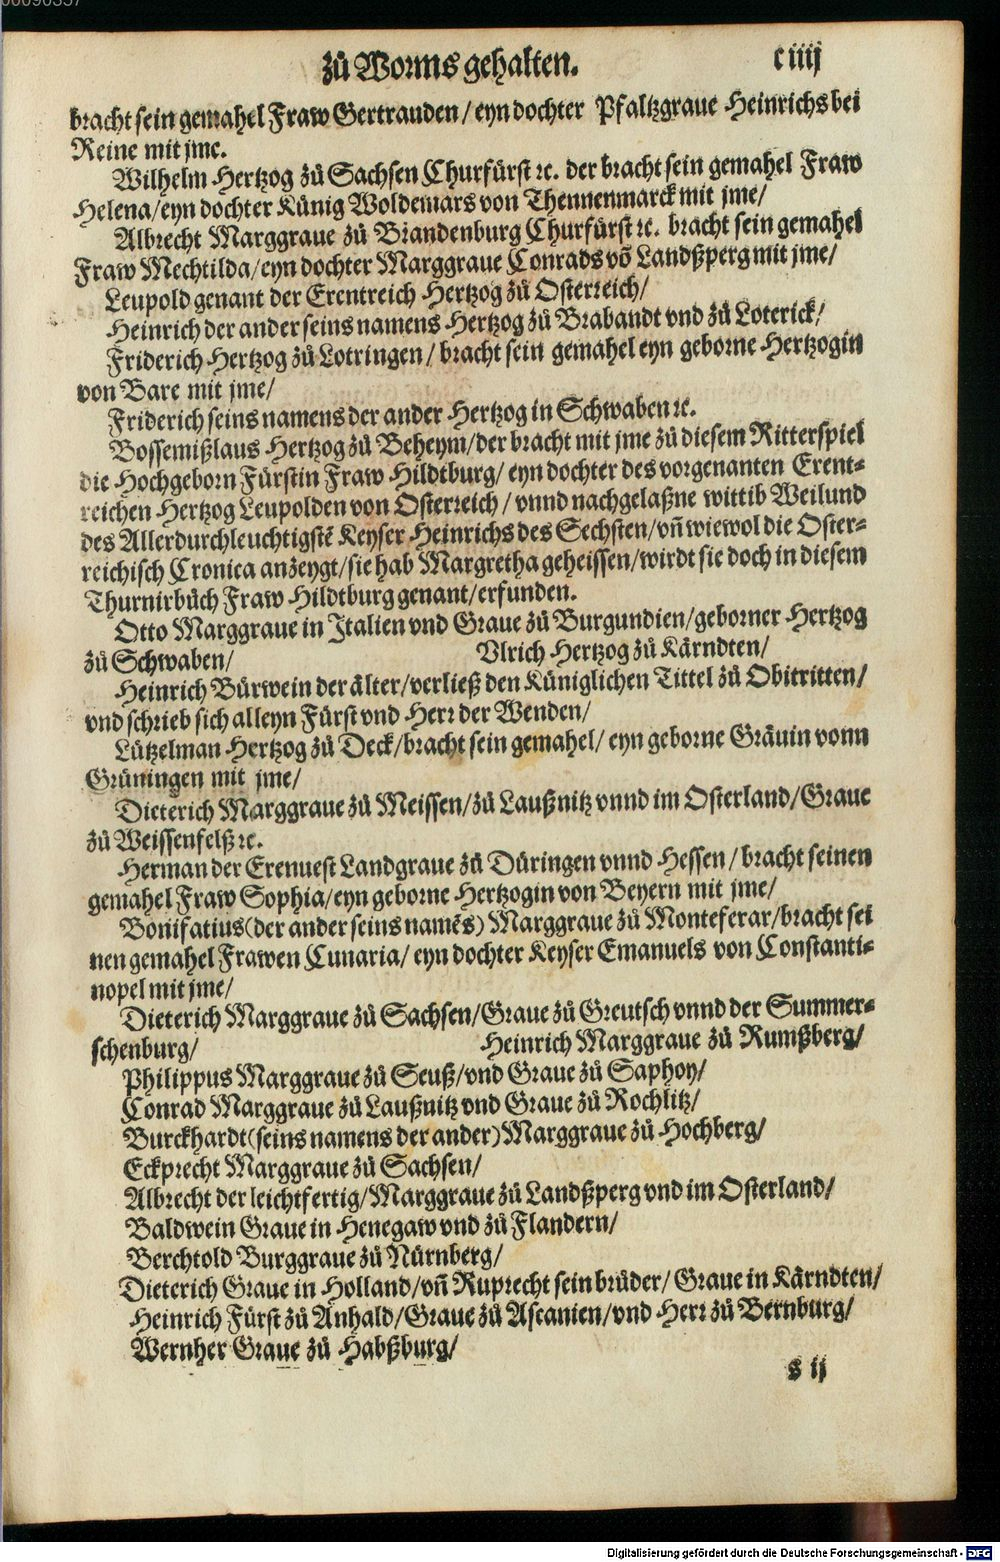 zů Worms gehalten. ciiij
bracht sein gemahel Fraw Gertrauden / eyn dochter Pfaltzgraue Heinrichs bei
Reine mit jme.
Wilhelm Hertzog zů Sachsen Churfürst ꝛc. der bracht sein gemahel Fraw
Helena/eyn dochter Künig Woldemars von Thennenmarck mit jme/
Albrecht Marggraue zů Brandenburg Churfürst ꝛc. bracht sein gemahel
Fraw Mechtilda/eyn dochter Marggraue Conrads võ Landßperg mit jme/
Leupold genant der Erentreich Hertzog zů Osterreich/
Heinrich der ander seins namens Hertzog zů Brabandt vnd zů Loterick/
Friderich Hertzog zů Lotringen / bracht sein gemahel eyn geborne Hertzogin
von Bare mit jme/
Friderich seins namens der ander Hertzog in Schwaben ꝛc.
Bossemißlaus Hertzog zů Beheym/der bracht mit jme zů diesem Ritterspiel
die Hochgeborn Fürstin Fraw Hildtburg/ eyn dochter des vorgenanten Erent-
reichen Hertzog Leupolden von Osterreich / vnnd nachgelaßne wittib Weilund
des Allerdurchleuchtigstẽ Keyser Heinrichs des Sechsten/vñ wiewol die Oster-
reichisch Cronica anzeygt/sie hab Margretha geheissen/wirdt sie doch in diesem
Thurnirbůch Fraw Hildtburg genant/erfunden.
Otto Marggraue in Italien vnd Graue zů Burgundien/geborner Hertzog
zů Schwaben/ Vlrich Hertzog zů Kärndten/
Heinrich Bürwein der älter/verließ den Küniglichen Tittel zů Obitritten/
vnd schrieb sich alleyn Fürst vnd Herr der Wenden/
Lützelman Hertzog zů Deck/bracht sein gemahel/ eyn geborne Gräuin vonn
Grüningen mit jme/
Dieterich Marggraue zů Meissen/zů Laußnitz vnnd im Osterland/Graue
zů Weissenfelß ꝛc.
Herman der Erenuest Landgraue zů Düringen vnnd Hessen / bracht seinen
gemahel Fraw Sophia/eyn geborne Hertzogin von Beyern mit jme/
Bonifatius(der ander seins namẽs) Marggraue zů Monteferar/bracht sei
nen gemahel Frawen Cunaria/ eyn dochter Keyser Emanuels von Constanti-
nopel mit jme/
Dieterich Marggraue zů Sachsen/Graue zů Greutsch vnnd der Summer-
schenburg/ Heinrich Marggraue zů Rumßberg/
Philippus Marggraue zů Seuß/vnd Graue zů Saphoy/
Conrad Marggraue zů Laußnitz vnd Graue zů Rochlitz/
Burckhardt(seins namens der ander)Marggraue zů Hochberg/
Eckprecht Marggraue zů Sachsen/
Albrecht der leichtfertig/Marggraue zů Landßperg vnd im Osterland/
Baldwein Graue in Henegaw vnd zů Flandern/
Berchtold Burggraue zů Nürnberg/
Dieterich Graue in Holland/vñ Ruprecht sein brůder/ Graue in Kärndten/
Heinrich Fürst zů Anhald/Graue zů Ascanien/vnd Herr zů Bernburg/
Wernher Graue zů Habßburg/
s ij
Digitalisierung gefördert durch die Deutsche Forschungsgemeinschaft - DFG